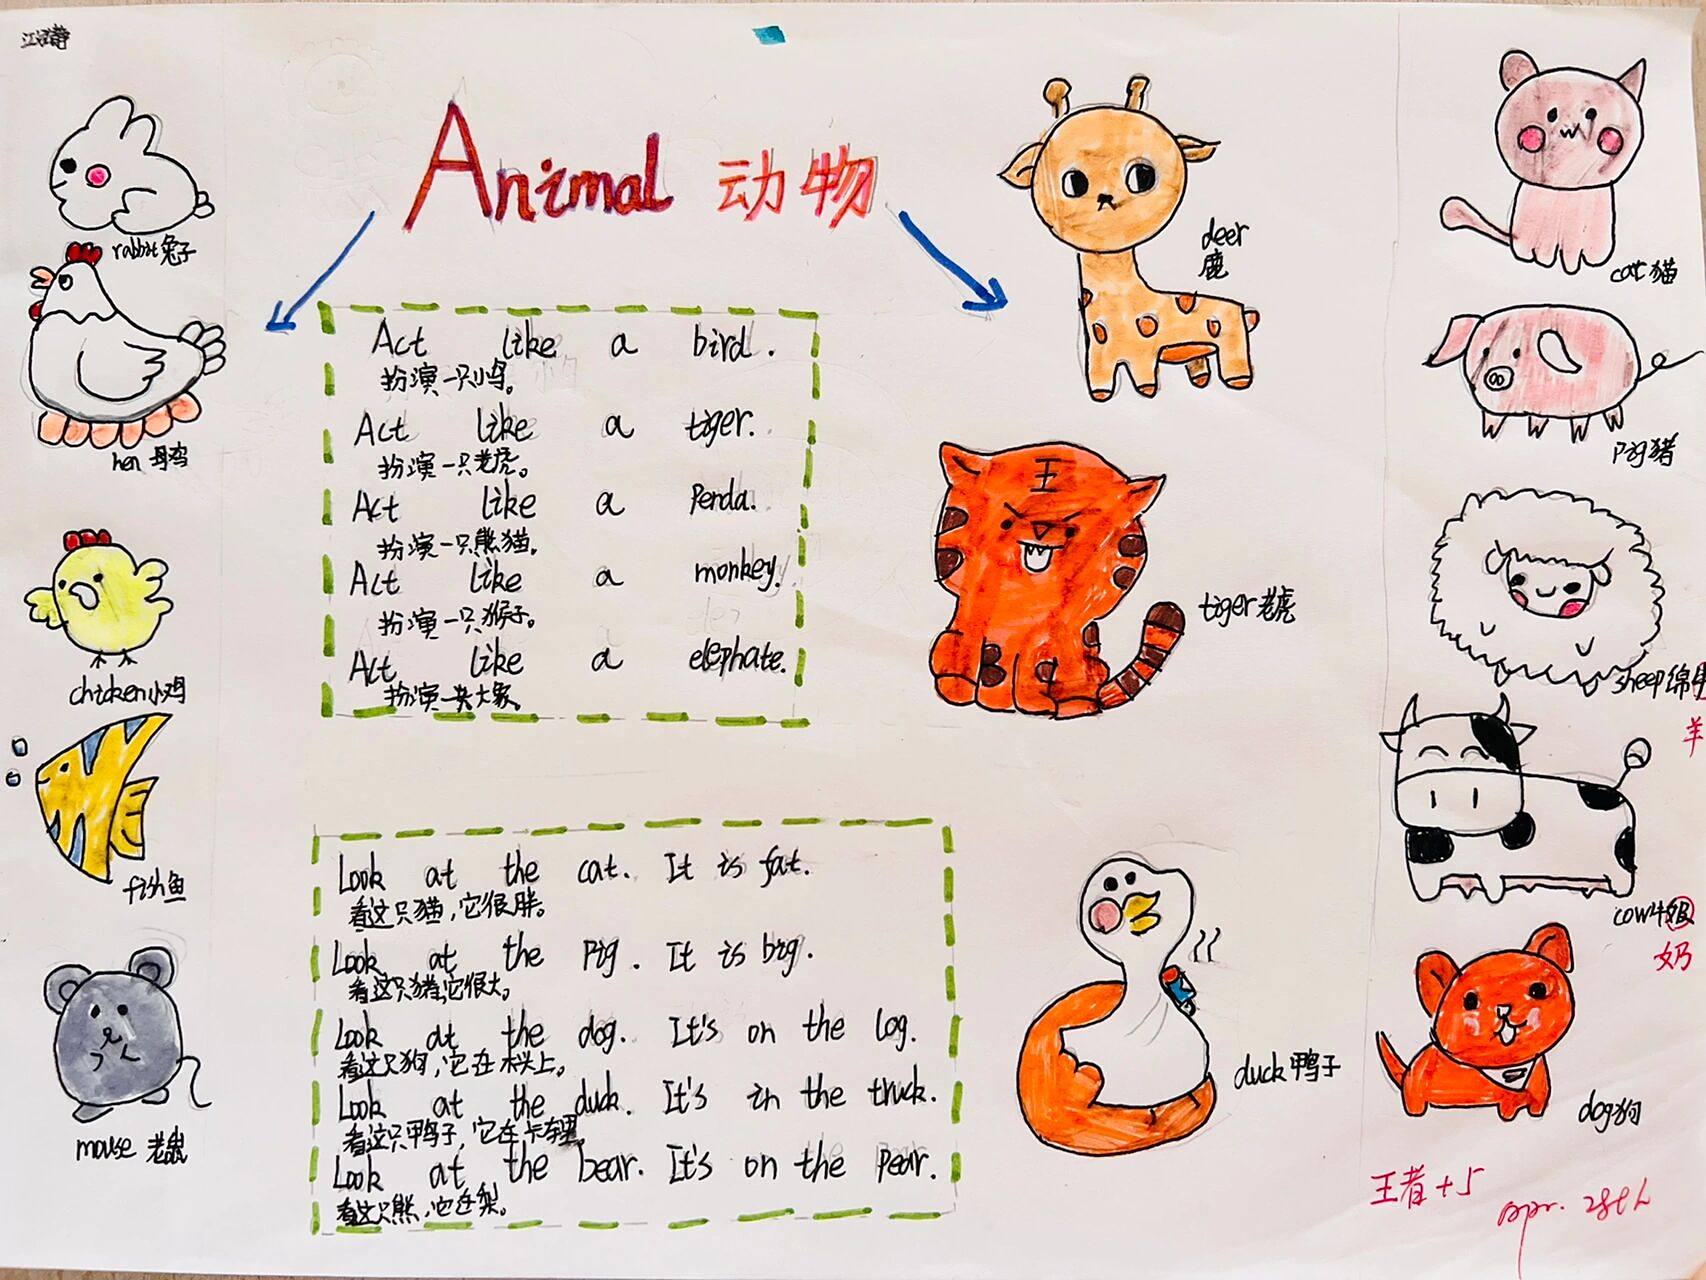 Animal 动物
rabbit 兔子
hen 母鸡
chicken 小鸡
fish 鱼
mouse 老鼠
Act like a bird.
扮演一只小鸟。
Act like a tiger.
扮演一只老虎。
Act like a Penda.
扮演一只熊猫。
Act like a monkey.
扮演一只猴子。
Act like a elephate.
扮演一头大象。
Look at the cat. It is fat.
看这只猫,它很胖。
Look at the Pig. It is big.
看这只猪,它很大。
Look at the dog. It's on the log.
看这只狗,它在木头上。
Look at the duck. It's in the truck.
看这只鸭子,它在卡车里。
Look at the bear. It's on the Pear.
看这只熊,它在梨。
deer
鹿
王
tiger 老虎
duck 鸭子
cat 猫
Pig 猪
sheep 绵
羊
cow 牛
奶
dog 狗
王者+5
Apr. 28th